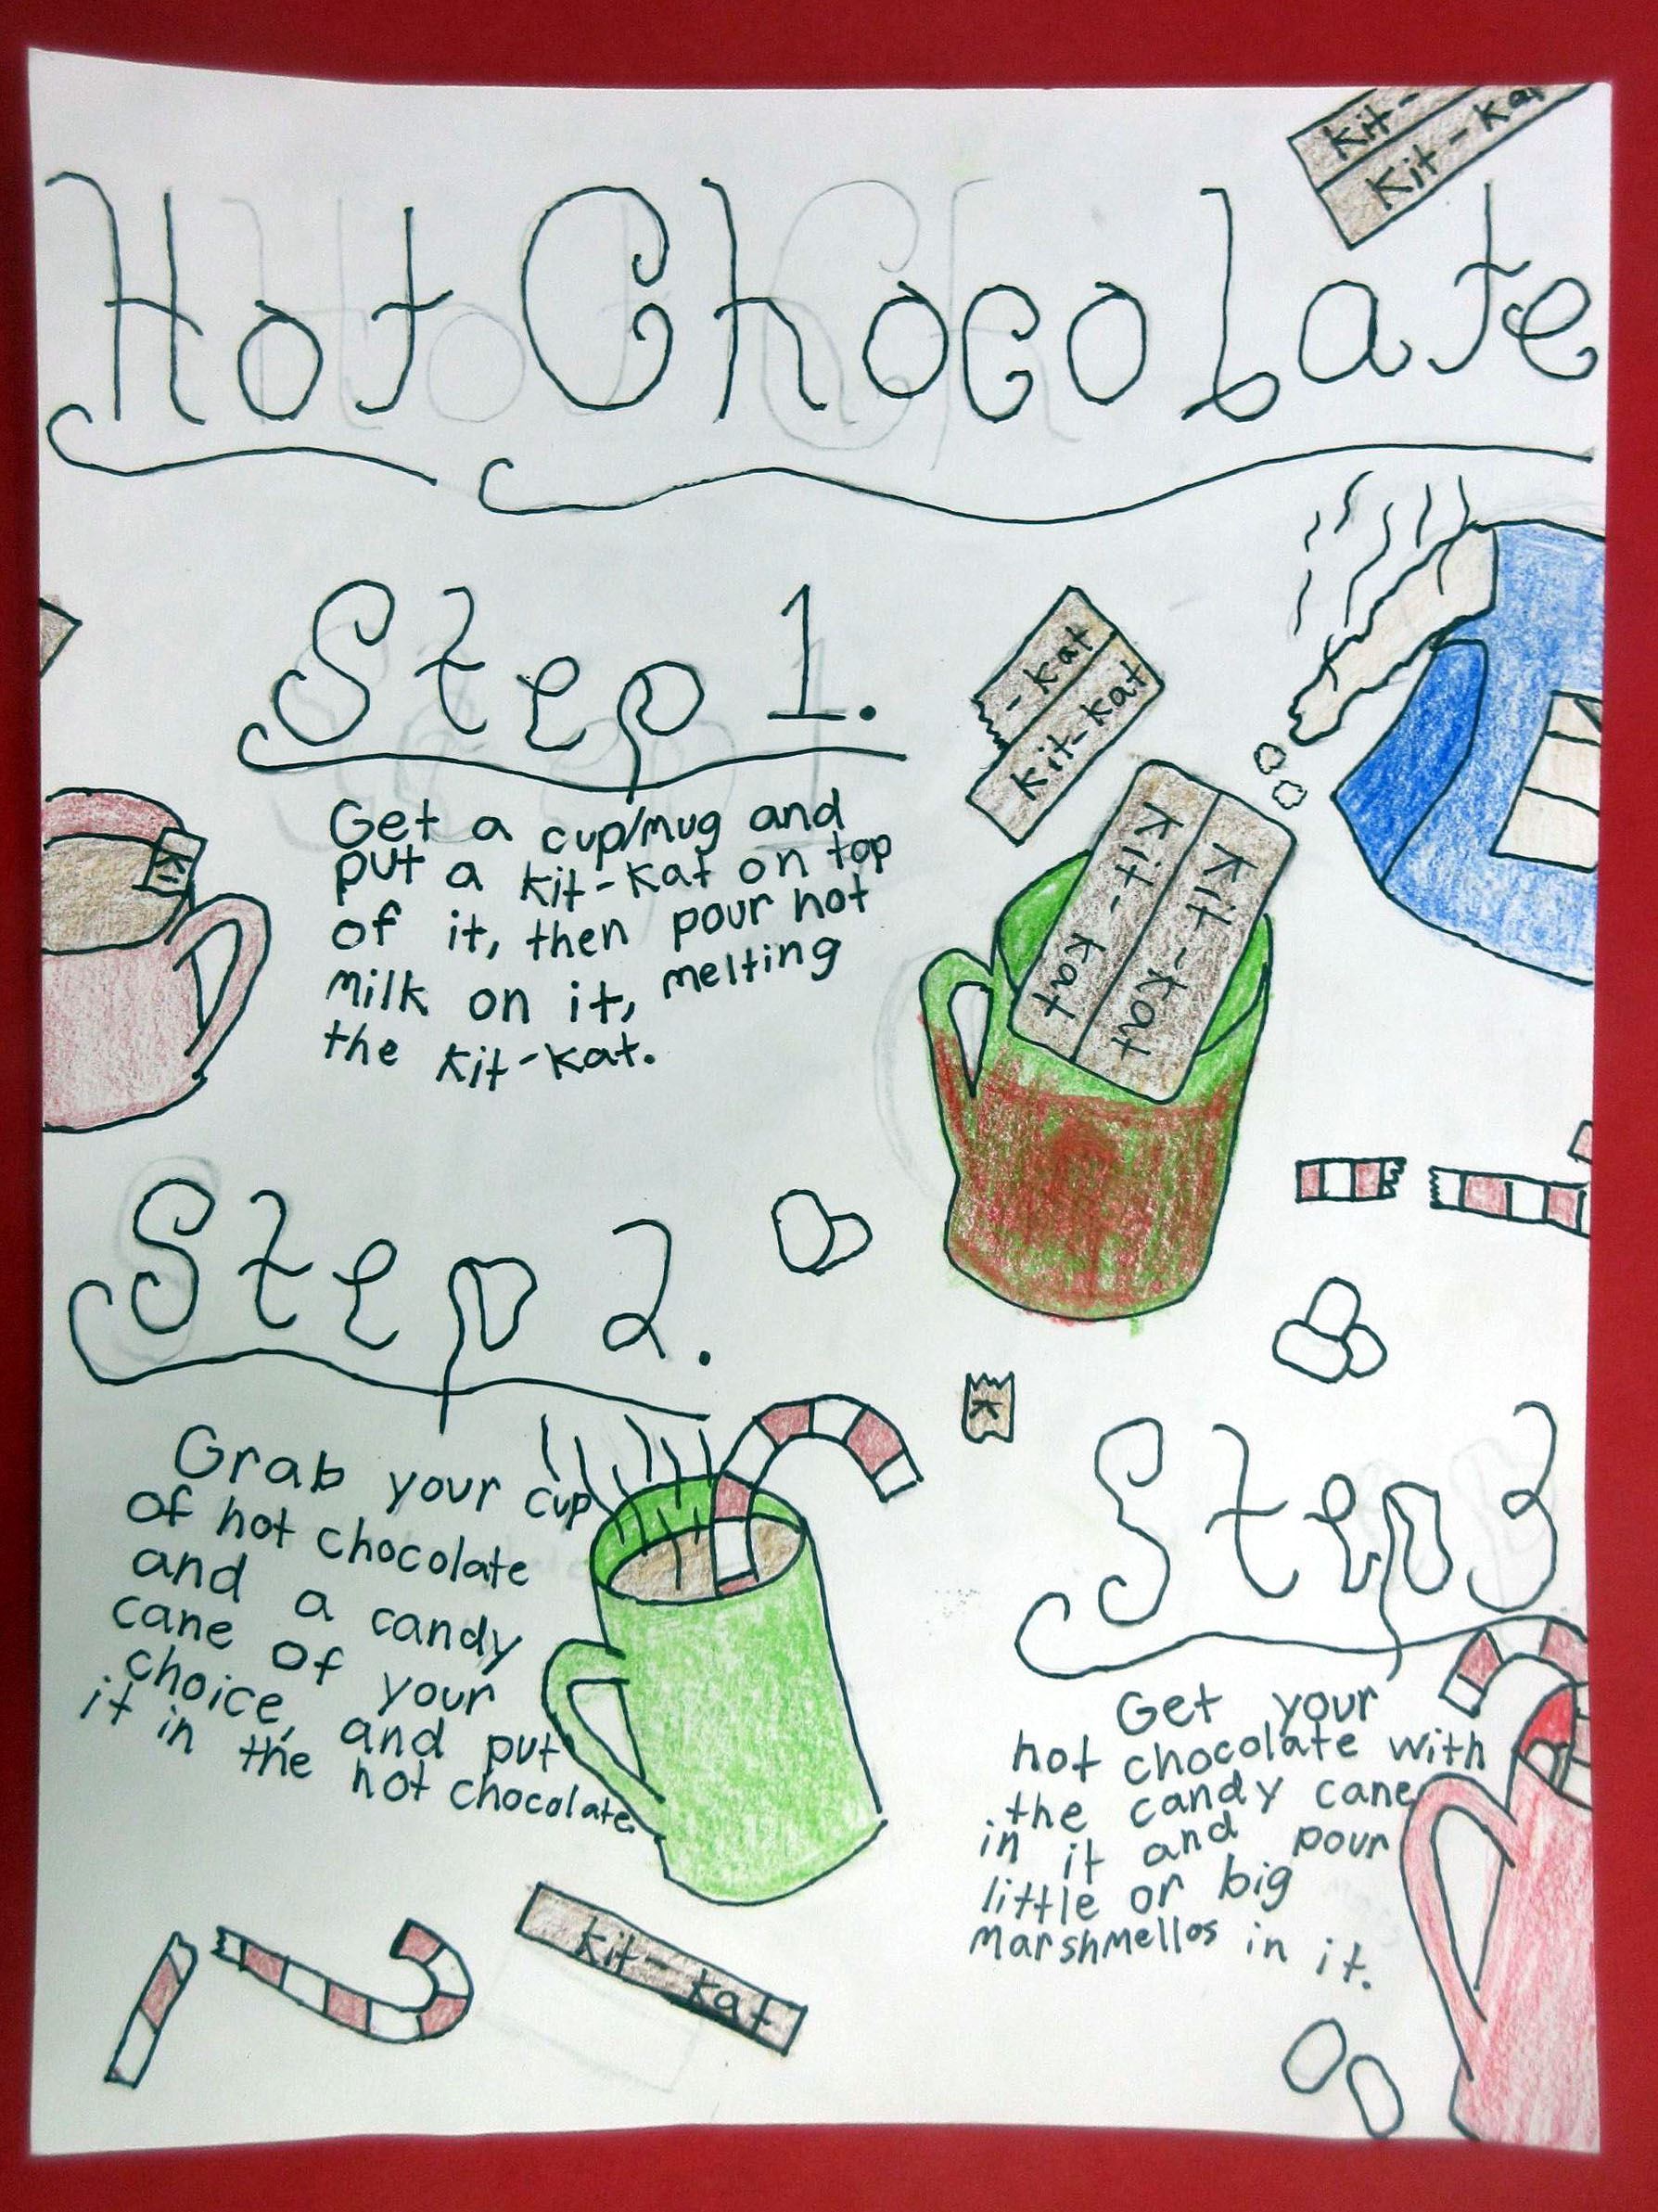 kit-
Kit-Kat
Hot Chocolate
Step 1.
- Kat
Kit-Kat
Get a cup/mug and
put a Kit-Kat on top
of it, then pour hot
milk on it, melting
the Kit-Kat.
Ki
Kit-Kat
Kit-Kat
Step 2.
K
Grab your cup
of hot chocolate
and a candy
cane of your
choice, and put
it in the hot chocolate.
Step 3
Get your
hot chocolate with
the candy cane
in it and pour
little or big
marshmellos in it.
kit-kat